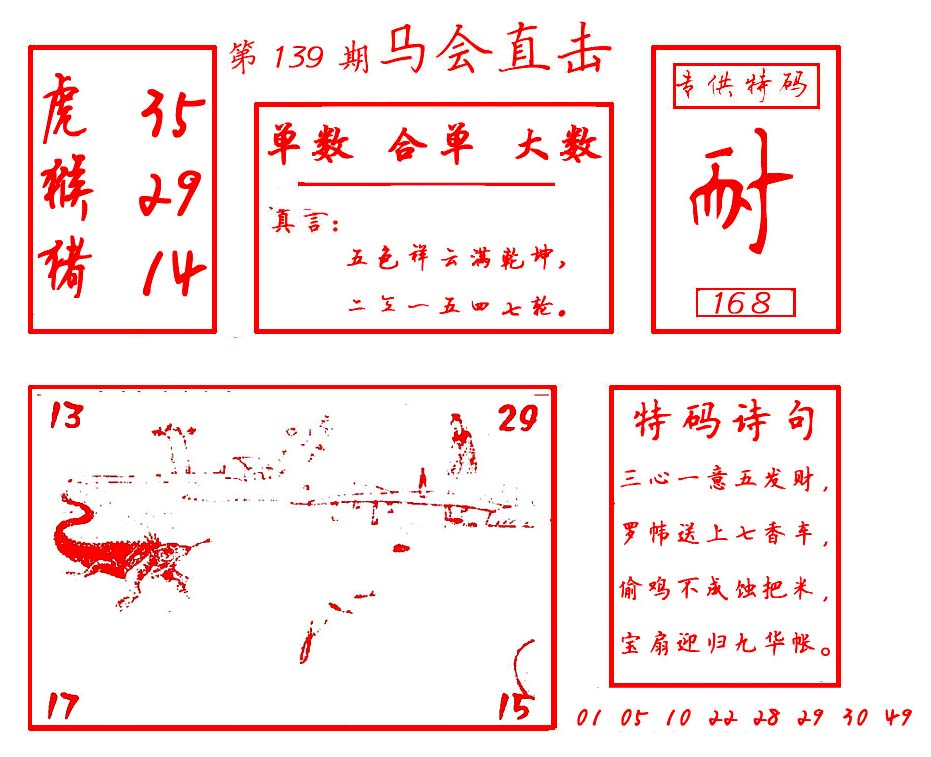 第 139 期 马会直击
虎 35
猴 29
猪 14
单数 合单 大数
真言：
五色祥云满乾坤，
二三一五四七轮。
专供特码
耐
168
13 29
17 15
特码诗句
三心一意五发财，
罗帏送上七香车，
偷鸡不成蚀把米，
宝扇迎归九华帐。
01 05 10 22 28 29 30 49